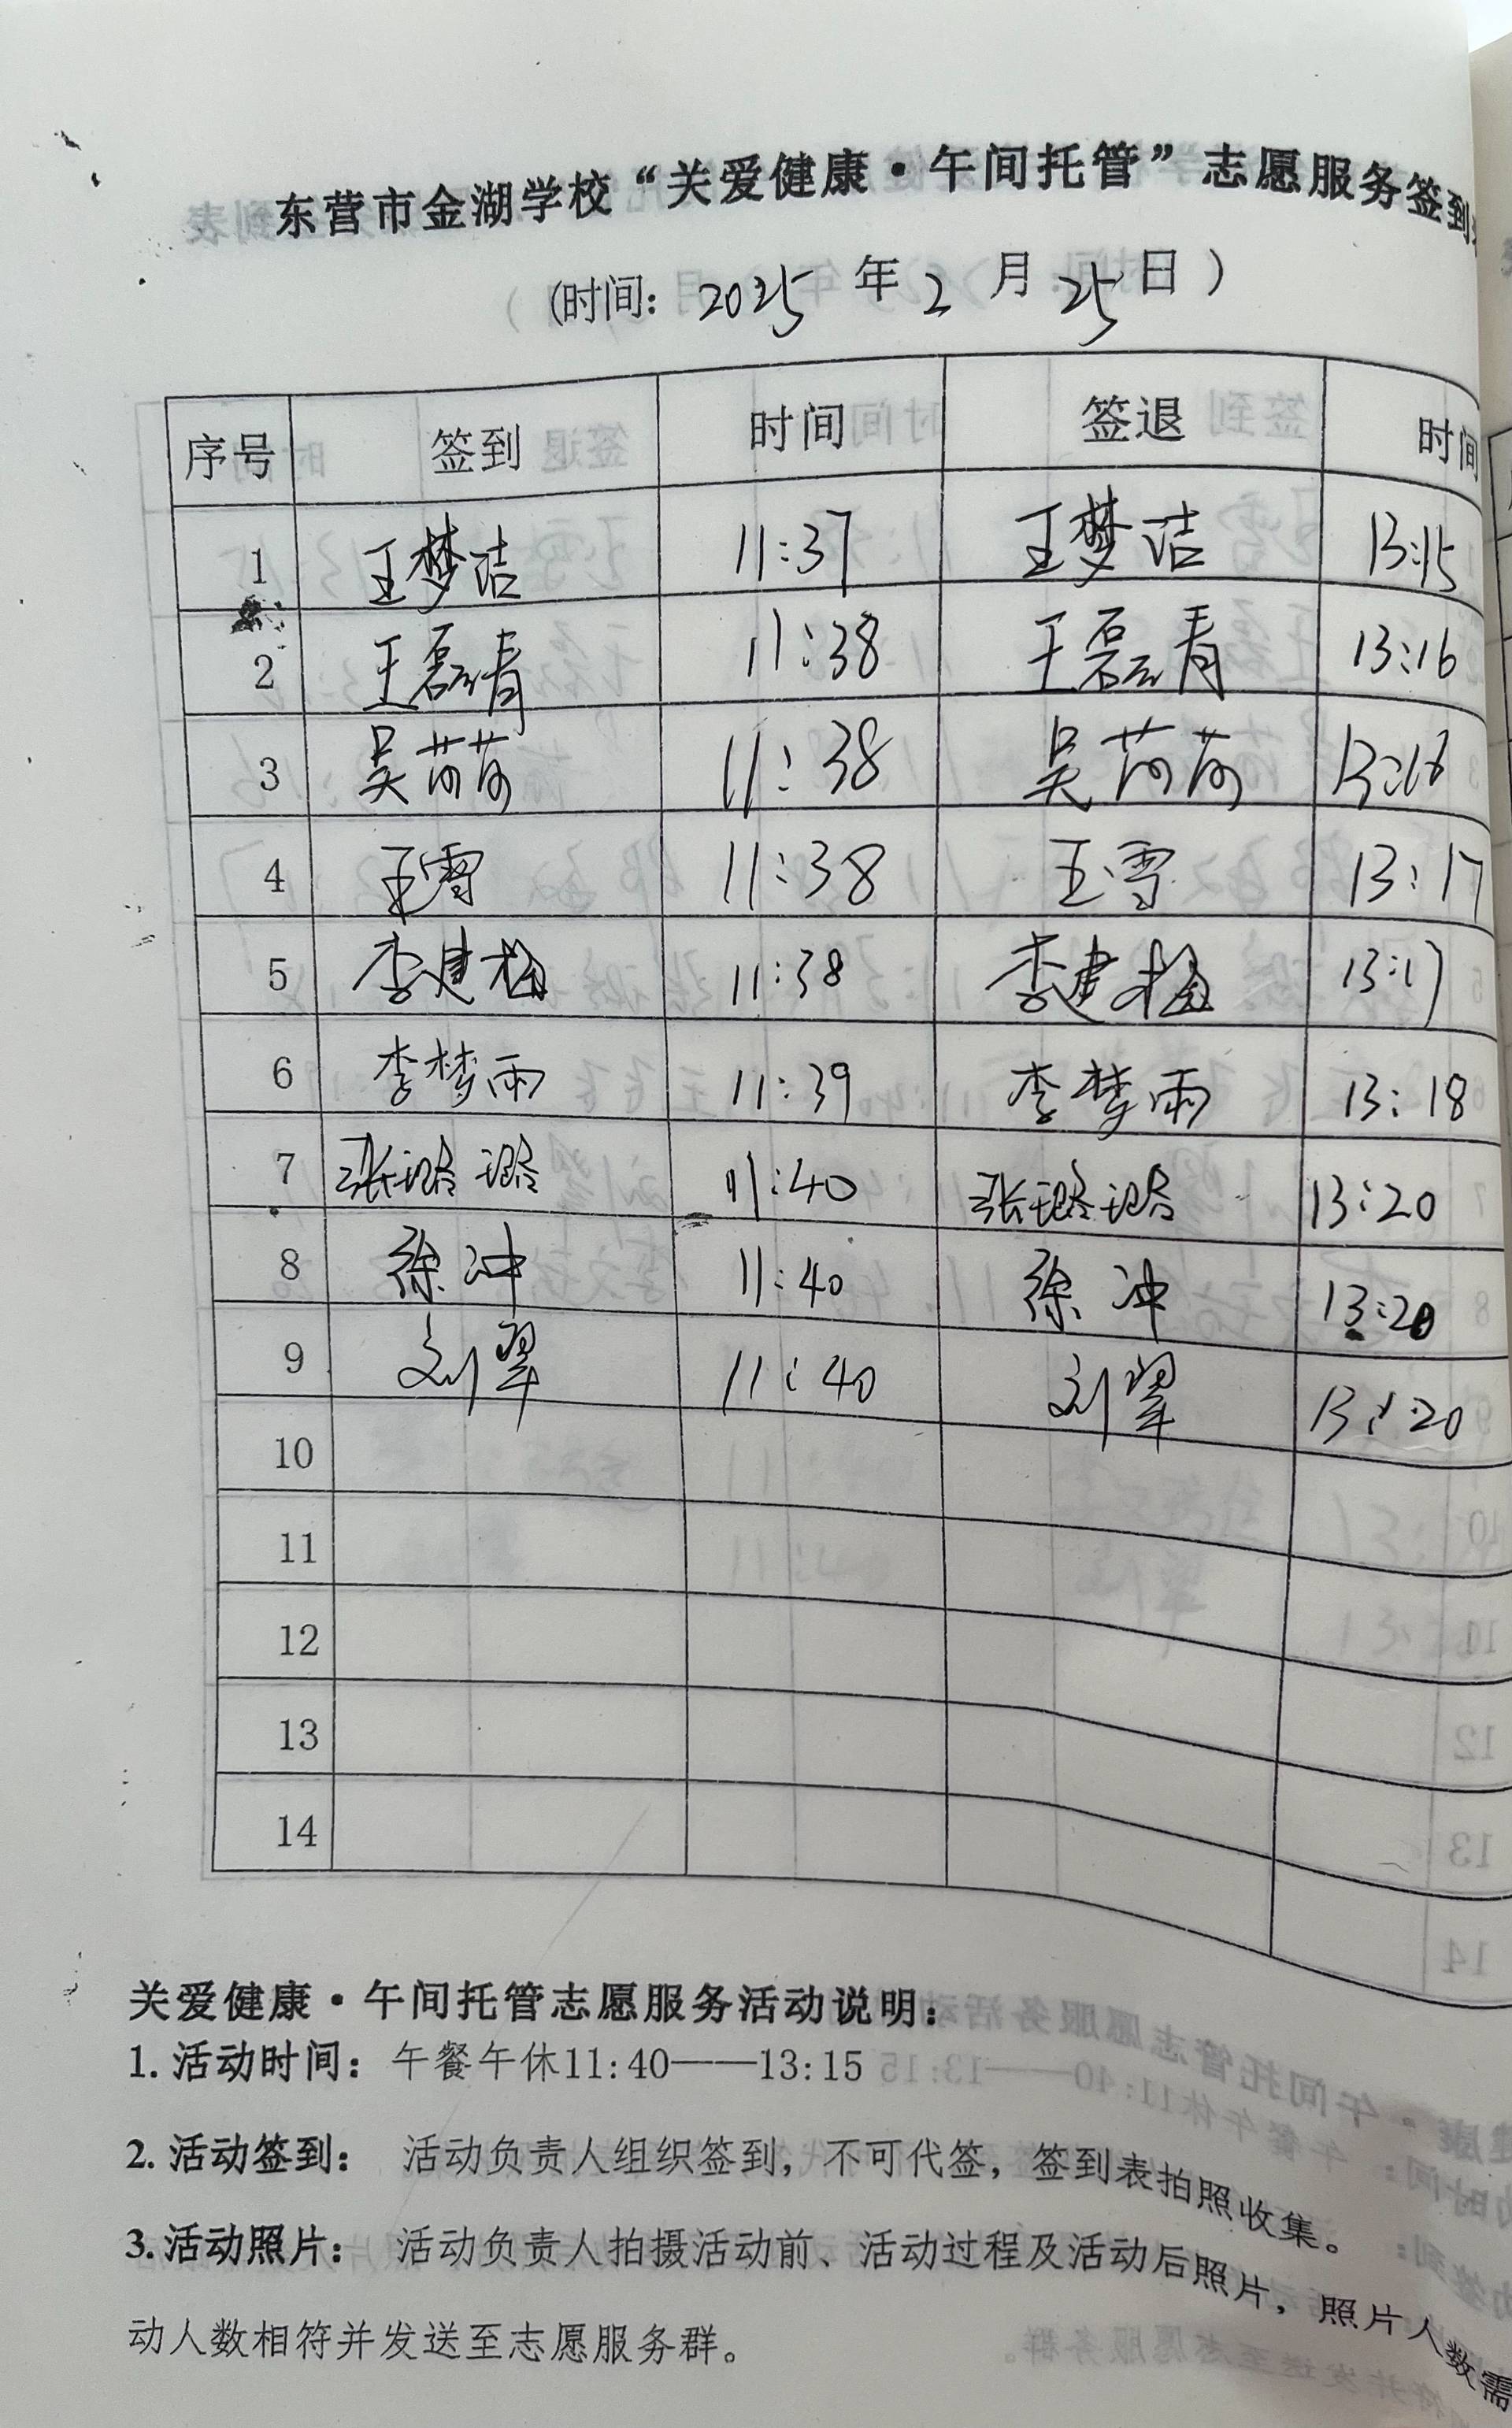 东营市金湖学校“关爱健康·午间托管”志愿服务签到
(时间: 2025 年 2 月 25 日 )
序号 签到 时间 签退 时间
1 王梦洁 11:37 王梦洁 13:15
2 王磊青 11:38 王磊青 13:16
3 吴苘苘 11:38 吴苘苘 13:16
4 王雪 11:38 王雪 13:17
5 李建梅 11:38 李建梅 13:17
6 李梦雨 11:39 李梦雨 13:18
7 张璐璐 11:40 张璐璐 13:20
8 徐冲 11:40 徐冲 13:20
9 刘翠 11:40 刘翠 13:20
10
11
12
13
14
关爱健康·午间托管志愿服务活动说明:
1. 活动时间: 午餐午休11:40——13:15
2. 活动签到: 活动负责人组织签到,不可代签,签到表拍照收集。
3. 活动照片: 活动负责人拍摄活动前、活动过程及活动后照片,照片人数需
动人数相符并发送至志愿服务群。